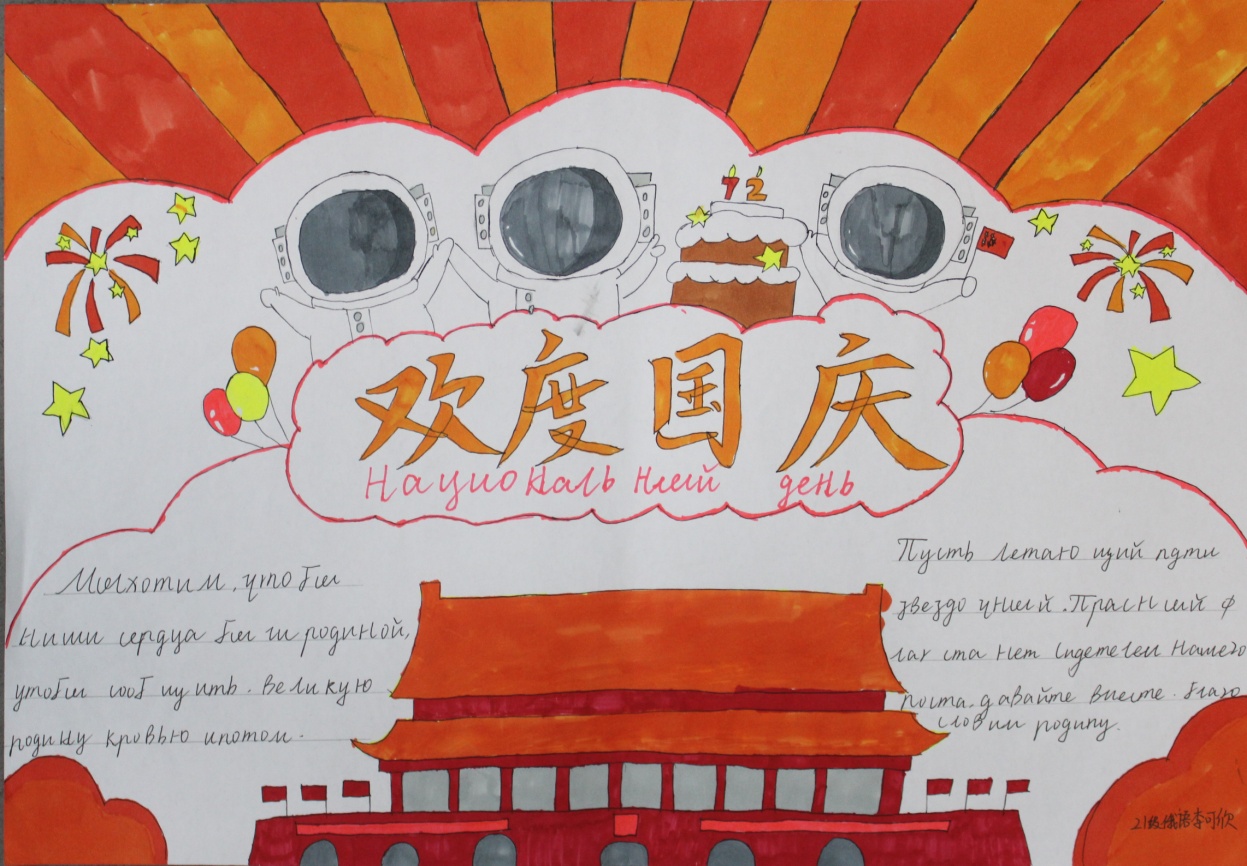 72
欢度国庆
Национальный день
Мы хотим, чтобы
наши сердца бились родиной,
чтобы сообщить. великую
родину кровью и потом.
Пусть летающий пяти
звездочный. Прасный ф
лаг станет свидетелем нашего
роста. давайте вместе. благо
словим родину.
21级俄语李可欣